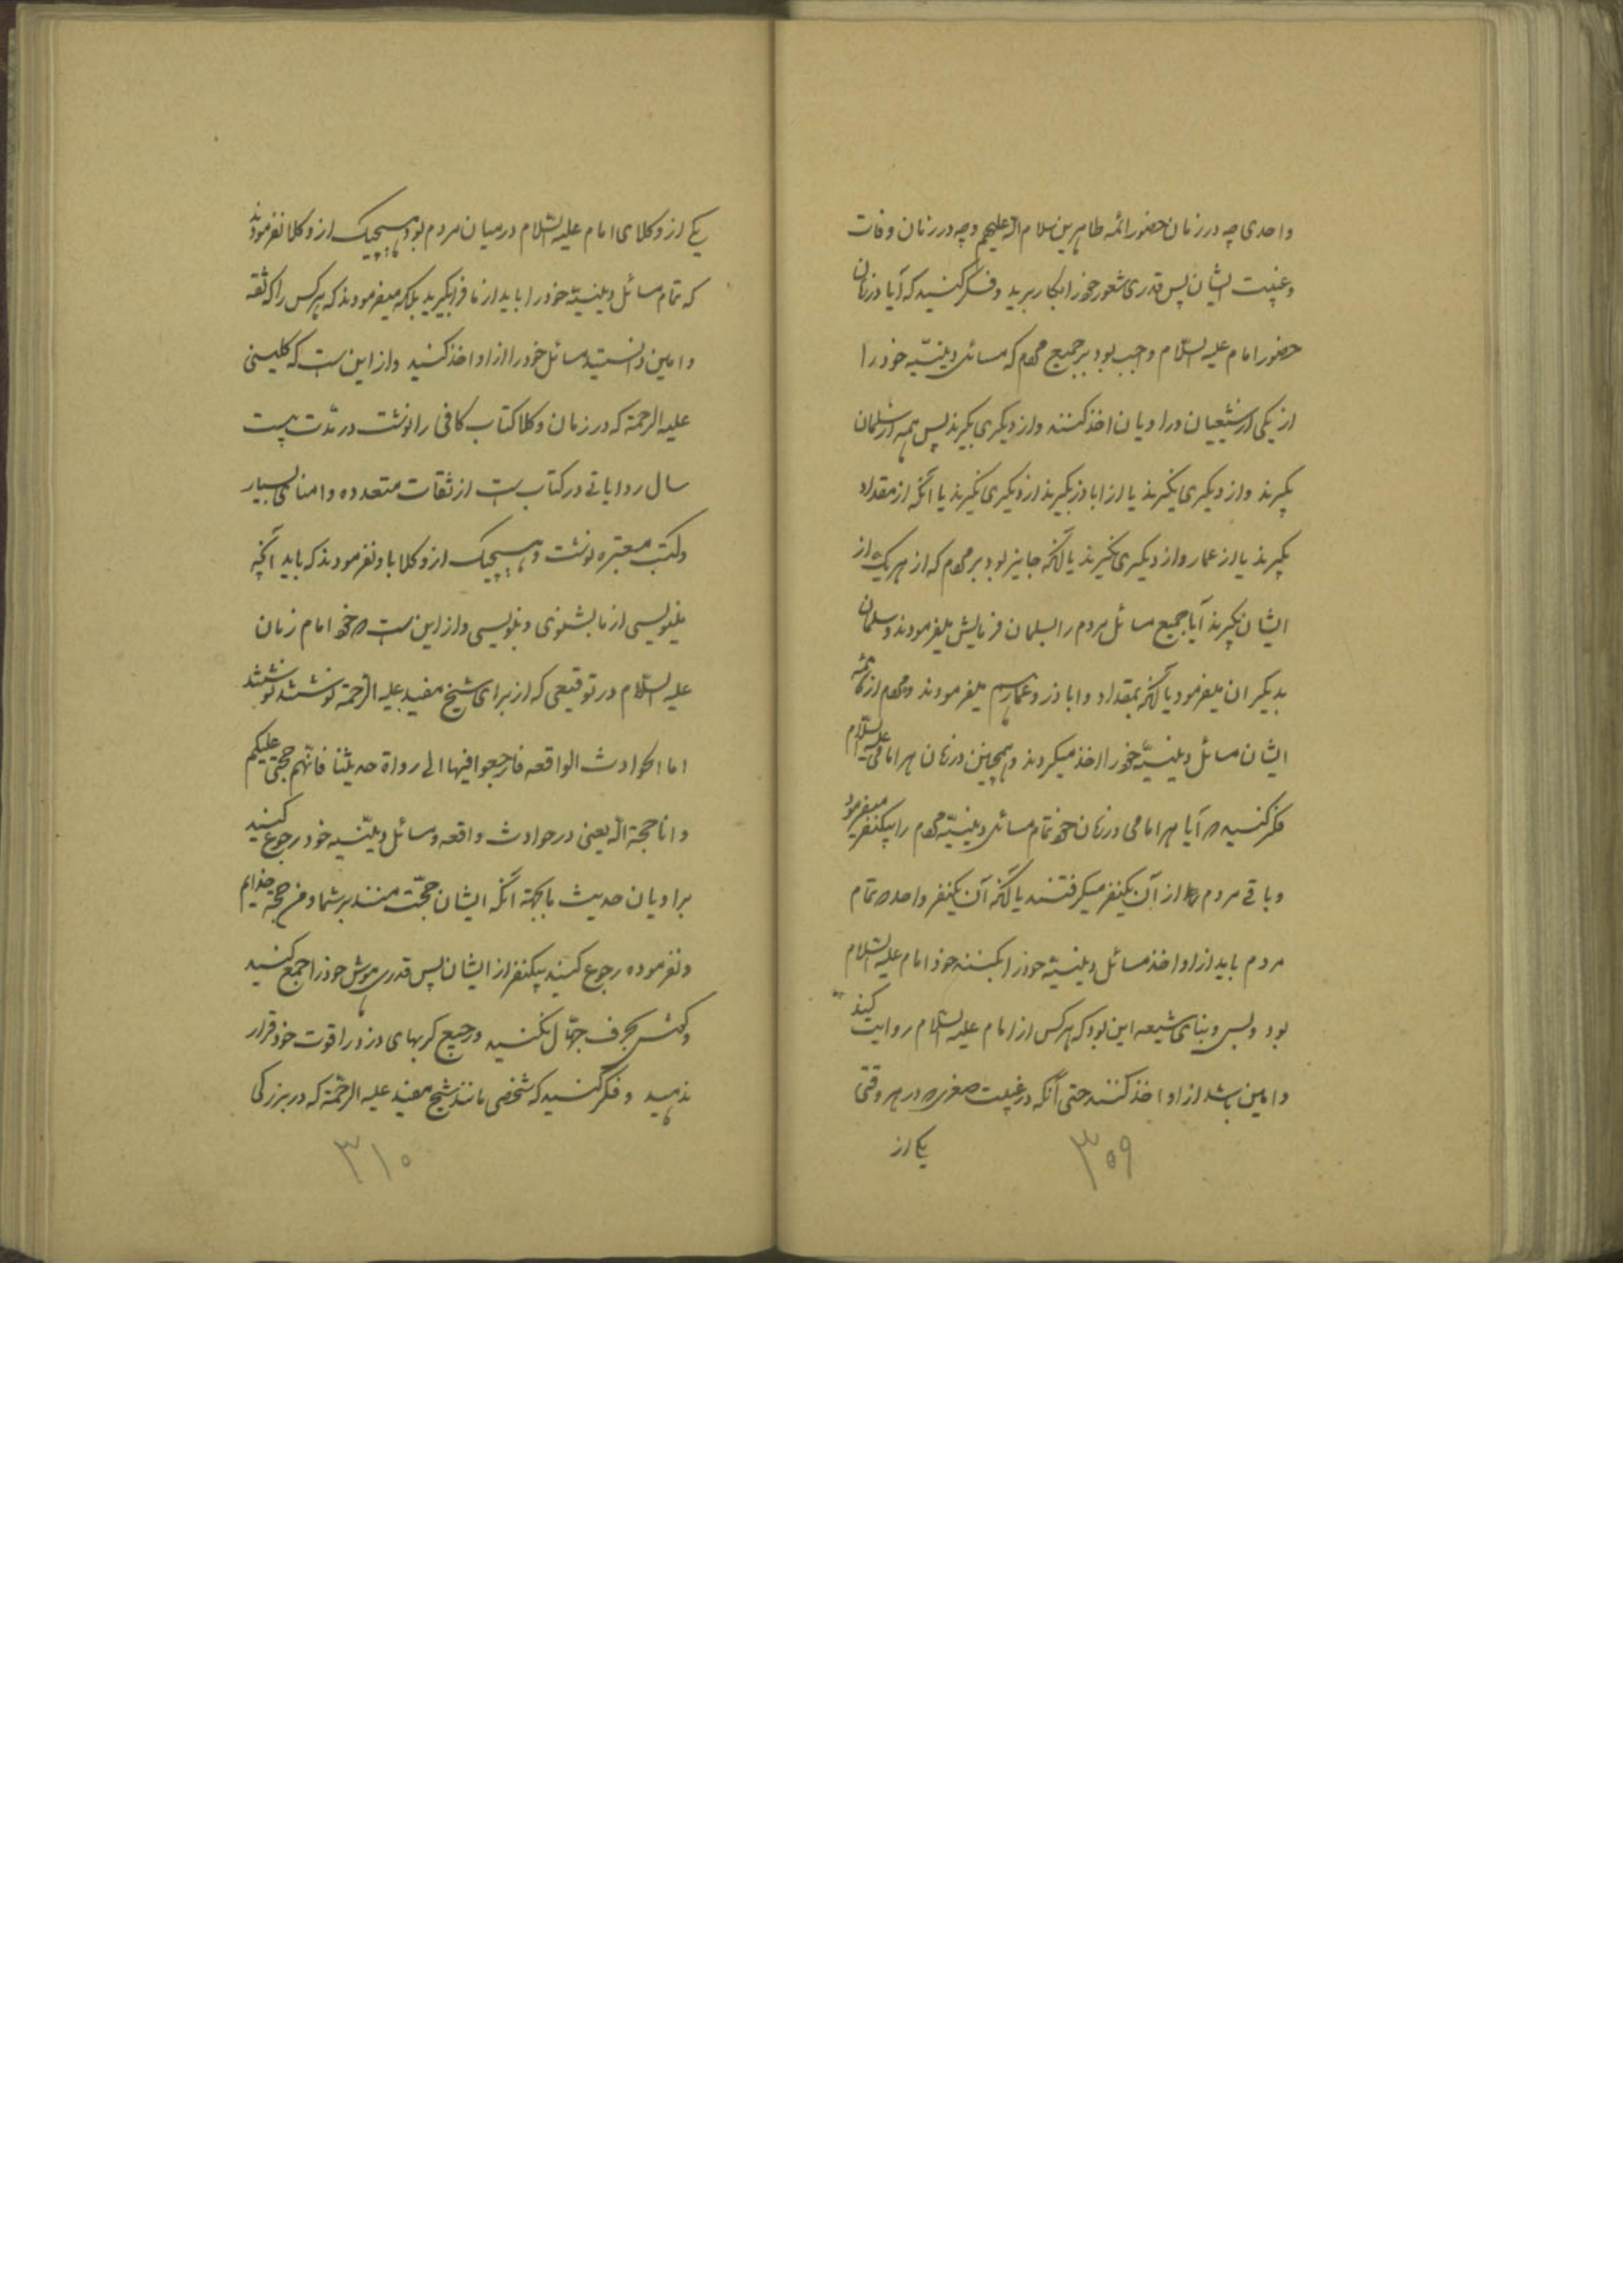 واحدی چه در زمان حضور ائمه طاهرین سلام الله علیهم و چه در زمان وفات
و غیبت ایشان پس قدری شعور خود را بکار برید و فکر کنید که آیا در زمان
حضور امام علیه السلام واجب بود بر جمیع مردم که مسائل دینیّه خود را
از یکی از شیعیان و راویان اخذ کنند و از دیگری نگیرند پس همه از سلمان
بگیرند و از دیگری نگیرند یا از اباذر بگیرند از دیگری نگیرند یا آنکه از مقداد
بگیرند یا از عمار و از دیگری نگیرند یا آنکه جایز بود بر مردم که از هر یک از
ایشان بگیرند آیا جمیع مسائل مردم را بسلمان فرمایش میفرمودند و سلمان
بدیگران میفرمود یا آنکه بمقداد و اباذر و عمار هم میفرمودند و مردم از همه
ایشان مسائل دینیّه خود را اخذ میکردند و همچنین در زمان هر امامی علیه السلام
فکر کنید که آیا هر امامی در زمان خود تمام مسائل دینیّه مردم را بیکنفر میفرمود
و باقی مردم از آن یکنفر میگرفتند یا آنکه آن یکنفر واحد که تمام
مردم باید از او اخذ مسائل دینیّه خود را بکنند خود امام علیه السلام
بود و بس و بنای شیعه این بود که هر کس از امام علیه السلام روایت کند
و امین باشد از او اخذ کنند حتی آنکه در غیبت صغری که در هر وقتی
یکی از
۳۰۹
یکی از وکلای امام علیه السلام در میان مردم بود هیچیک از وکلا نفرمودند
که تمام مسائل دینیّه خود را باید از ما فرا بگیرید بلکه میفرمودند که هر کس را که ثقه
و امین دانستید مسائل خود را از او اخذ کنید و از این است که کلینی
علیه الرحمة که در زمان وکلا کتاب کافی را نوشت در مدّت بیست
سال روایاتی در کتاب است از ثقات متعدده و امنای بسیار
و کتب معتبره نوشت و هیچیک از وکلا باو نفرمودند که باید آنچه
مینویسی از ما بشنوی و بنویسی و از این است که خود امام زمان
علیه السلام در توقیعی که از برای شیخ مفید علیه الرحمة نوشتند نوشتند
اما الحوادث الواقعه فارجعوا فیها الی رواة حدیثنا فانّهم حجتی علیکم
و انا حجة الله یعنی در حوادث واقعه و مسائل دینیّه خود رجوع کنید
براویان حدیث ما بجهة آنکه ایشان حجّت منند بر شما و من حجة خدایم
و نفرموده رجوع کنید بیکنفر از ایشان پس قدری هوش خود را جمع کنید
و گوش بحرف جهّال نکنید و جمیع گربهای دزد را قوت خود قرار
ندهید و فکر کنید که شخصی مانند شیخ مفید علیه الرحمة که در بزرگی
۳۱۰